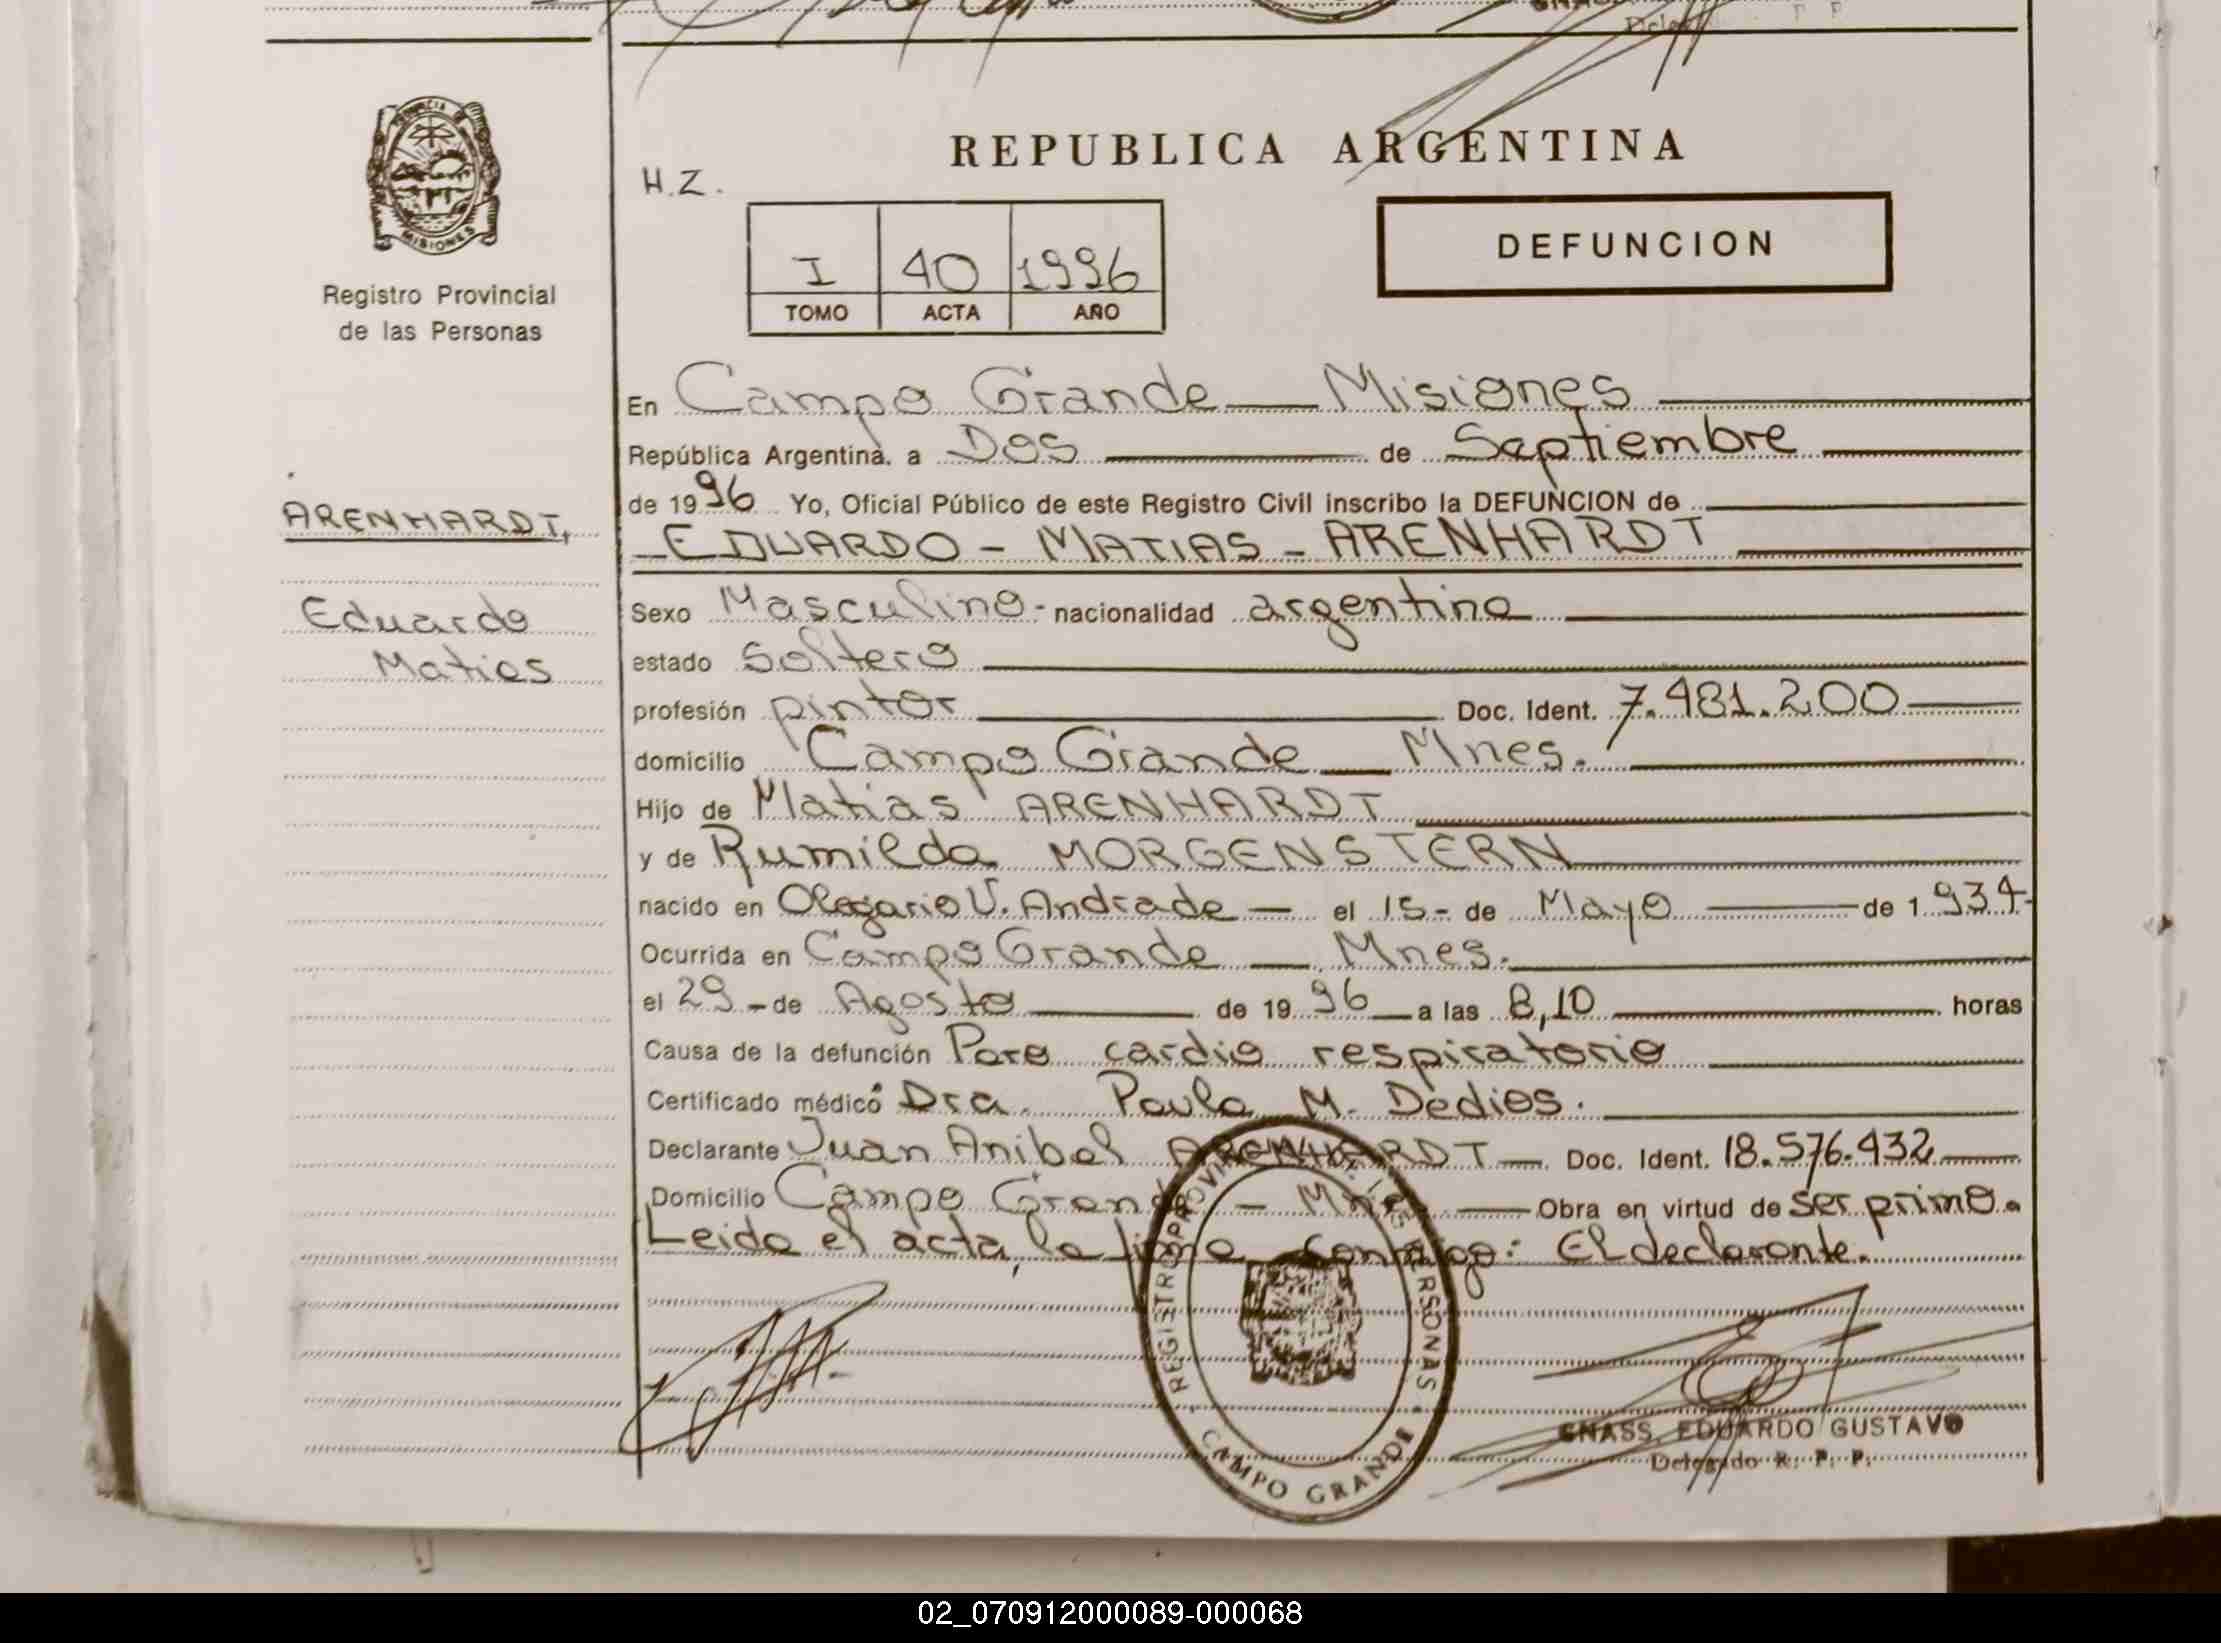 PROVINCIA
MISIONES
Registro Provincial
de las Personas
ARENHARDT,
Eduardo
Matias
Deleg P P
REPUBLICA ARGENTINA
H.Z.
DEFUNCION
I 40 1996
TOMO ACTA AÑO
En Campo Grande — Misiones
República Argentina, a Dos de Septiembre
de 1996 Yo, Oficial Público de este Registro Civil inscribo la DEFUNCION de
EDUARDO - MATIAS - ARENHARDT
Sexo Masculino - nacionalidad argentina
estado Soltero
profesión pintor Doc. Ident. 7.481.200
domicilio Campo Grande — Mnes.
Hijo de Matias ARENHARDT
y de Rumilda MORGENSTERN
nacido en Olegario V. Andrade — el 15 - de Mayo de 1.934-
Ocurrida en Campo Grande — Mnes.
el 29 - de Agosto de 1996 a las 8,10 horas
Causa de la defunción Paro cardio respiratorio
Certificado médico Dra. Paula M. Dedios.
Declarante Juan Anibal ARENHARDT — Doc. Ident. 18.576.432
Domicilio Campo Grande — Mnes — Obra en virtud de ser primo.
Leida el acta, la firma conmigo: El declarante.
REGISTRO PROVINCIAL DE LAS PERSONAS
CAMPO GRANDE
GNASS, EDUARDO GUSTAVO
Delegado R. P. P.
02_070912000089-000068